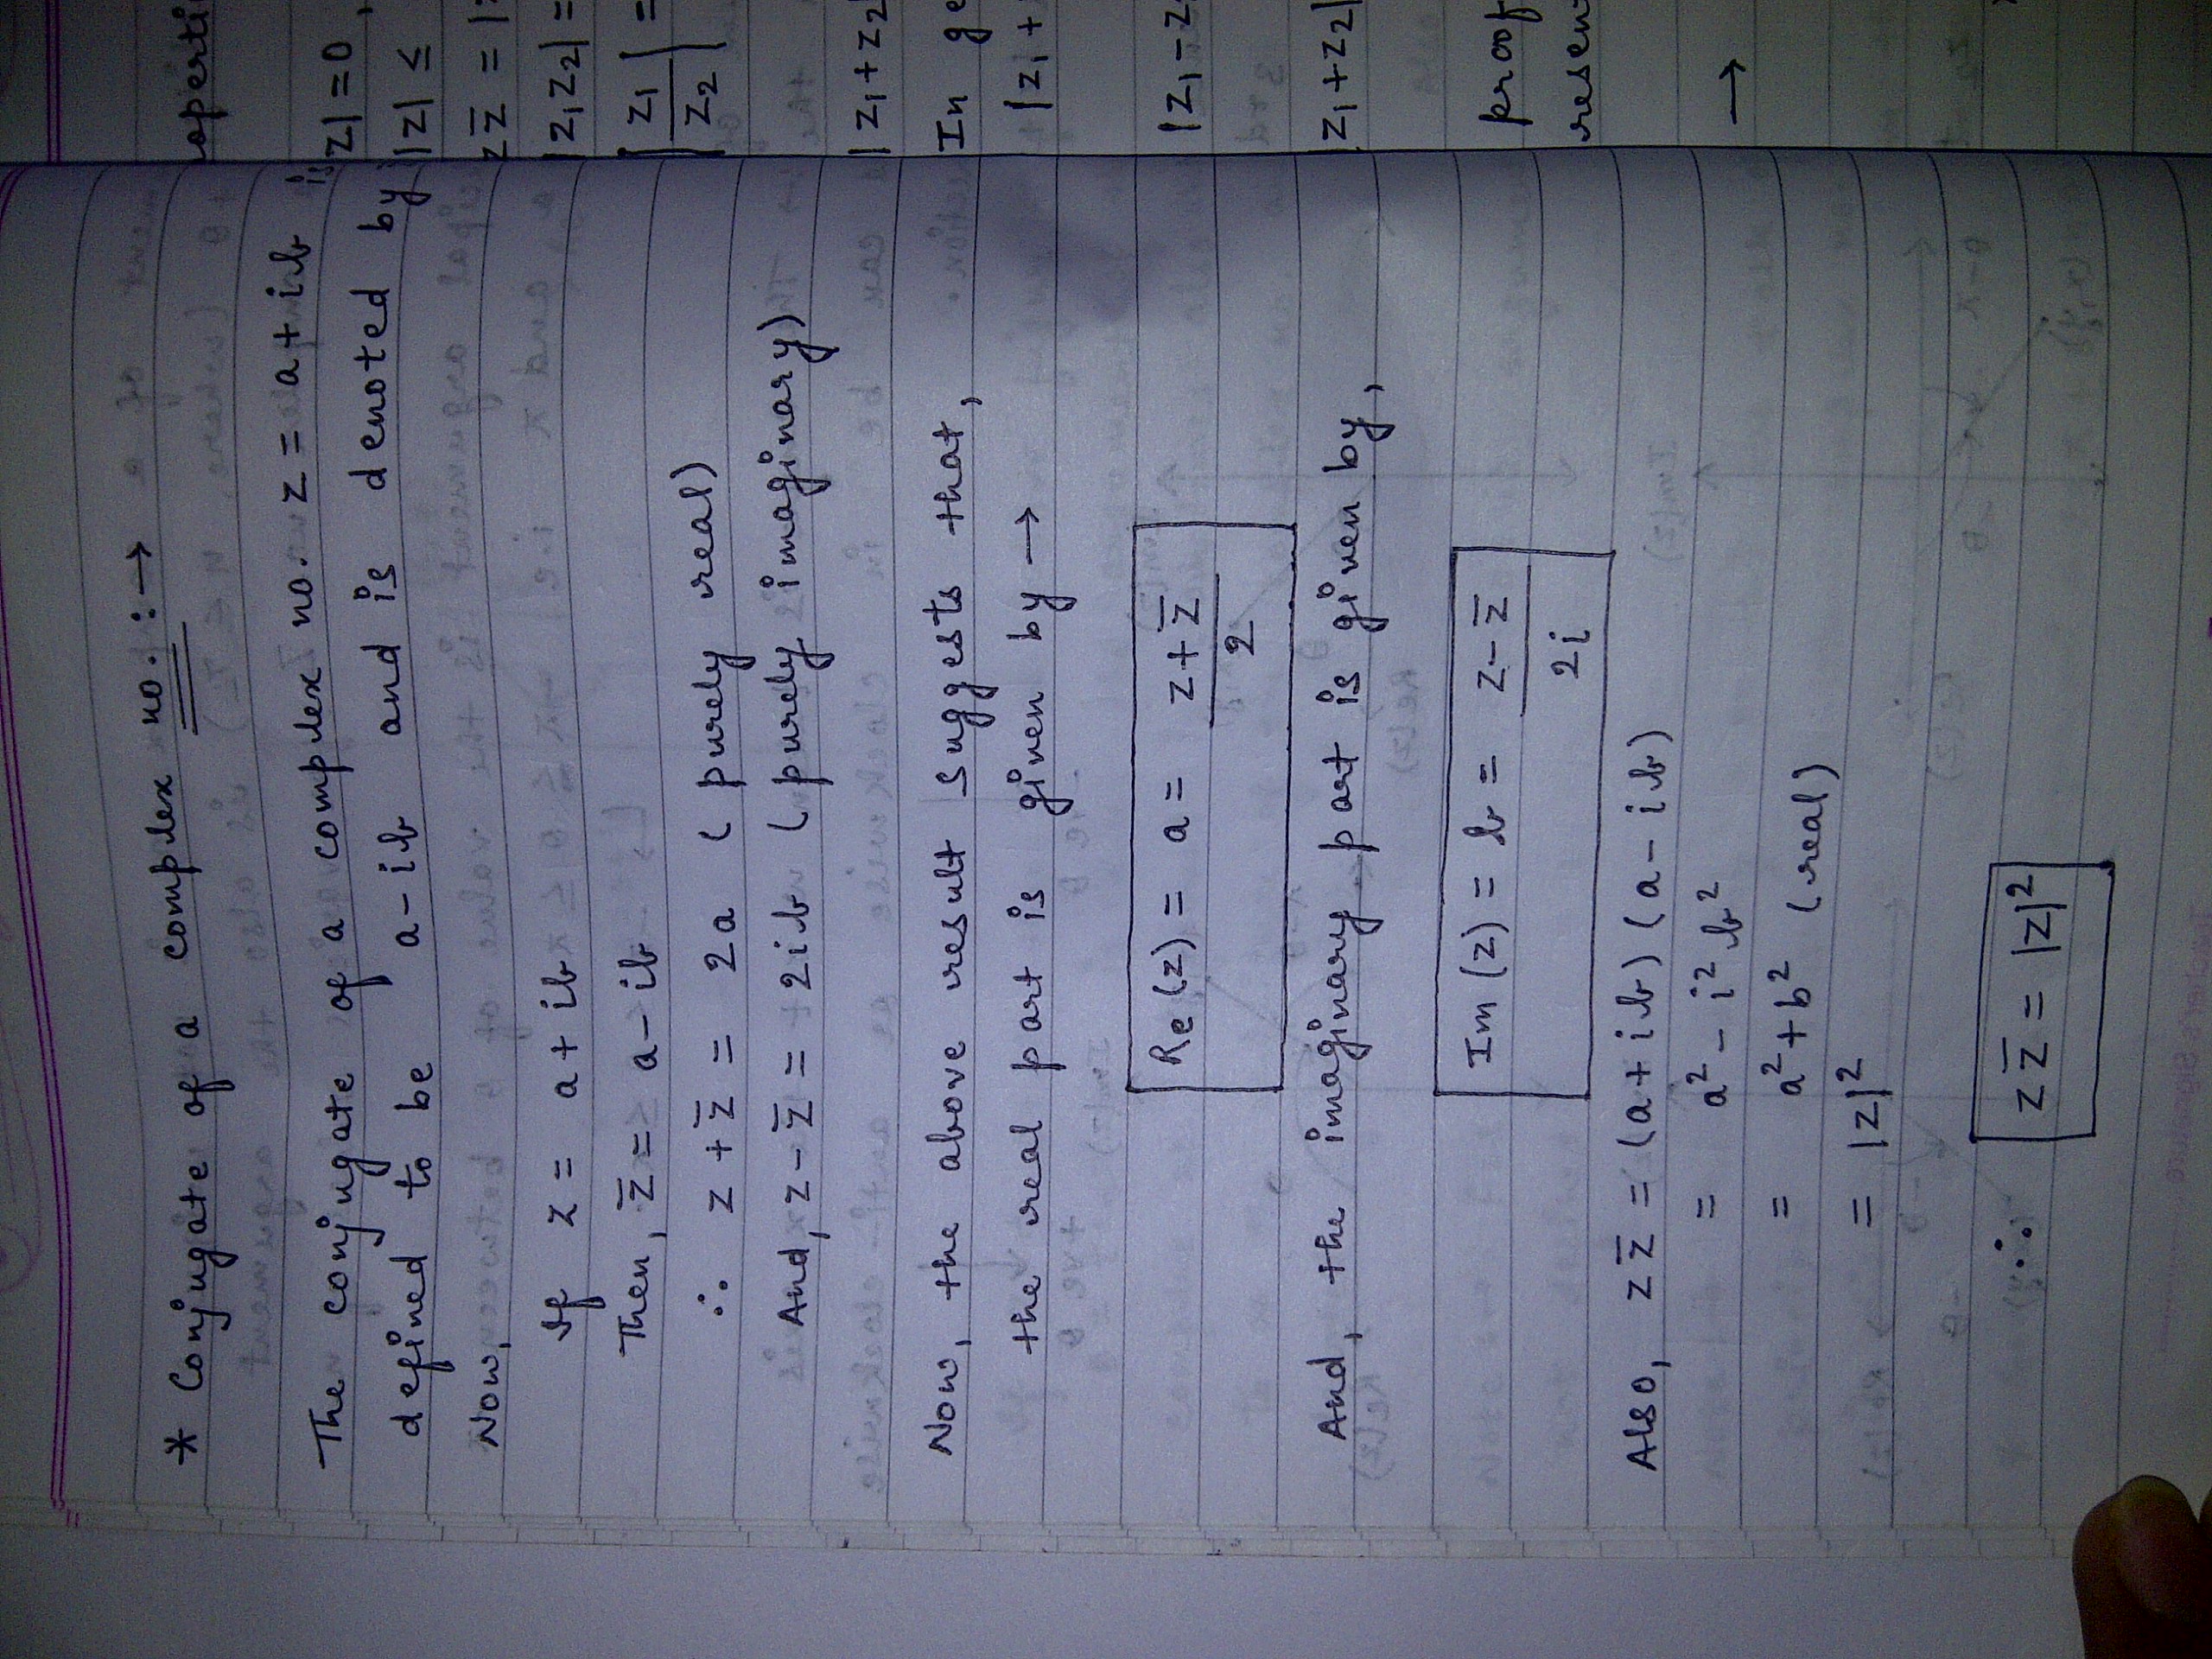 * Conjugate of a complex no. :→
The conjugate of a complex no. z = a + ib is
defined to be a - ib and is denoted by
Now,
If z = a + ib
Then, z̄ = a - ib
∴ z + z̄ = 2a (purely real)
And, z - z̄ = 2ib (purely imaginary)
Now, the above result suggests that,
the real part is given by →
Re(z) = a = (z + z̄)/2
And, the imaginary part is given by,
Im(z) = b = (z - z̄)/2i
Also, z z̄ = (a + ib) (a - ib)
= a² - i² b²
= a² + b² (real)
= |z|²
∴ z z̄ = |z|²
|z| = 0,
|z| ≤
z z̄ =
|z₁z₂| =
|z₁/z₂| =
|z₁+z₂
In
|z₁ +
|z₁ - z
|z₁+z₂|
proof
→